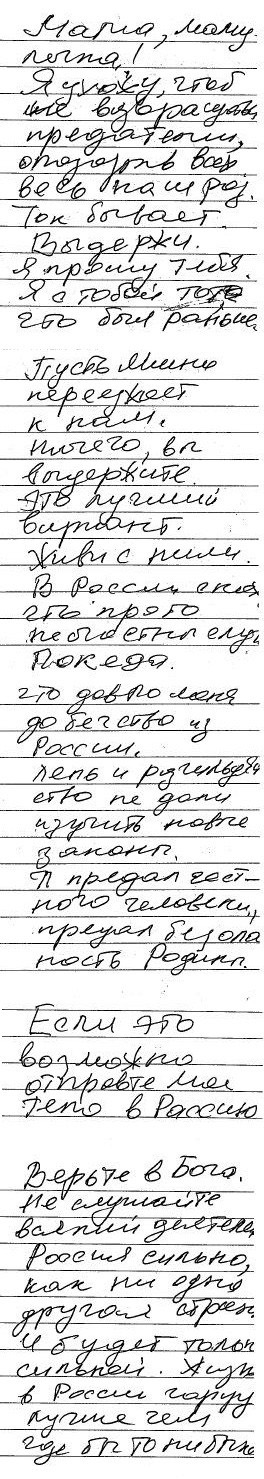 Мама, мамоч
почка!
Я ухожу, чтоб
не возвращаться
предателем,
опозорив всех
весь наш род.
Так бывает.
Выдержи.
Я прошу тебя.
Я с тобой тот
что был раньше
Пусть Минна
переезжает
к нам.
Ничего, вы
выдержите
это лучший
вариант.
Живи с ними.
В России скаж
что прото
несчастный случ
Победа.
что довело меня
до бегство из
России.
Лень и
ство не дали
изучить новые
законы.
Я предал чест-
ного человека,
предал безопа
ность Родины.
Если это
возможно
отправте мое
тело в Россию
Верьте в Бога.
Не слушайте
всякий деятелей
Россия сильна,
как ни одна
другая страна
И будет только
сильней. Жизнь
в России
лучше чем
где бы то ни было